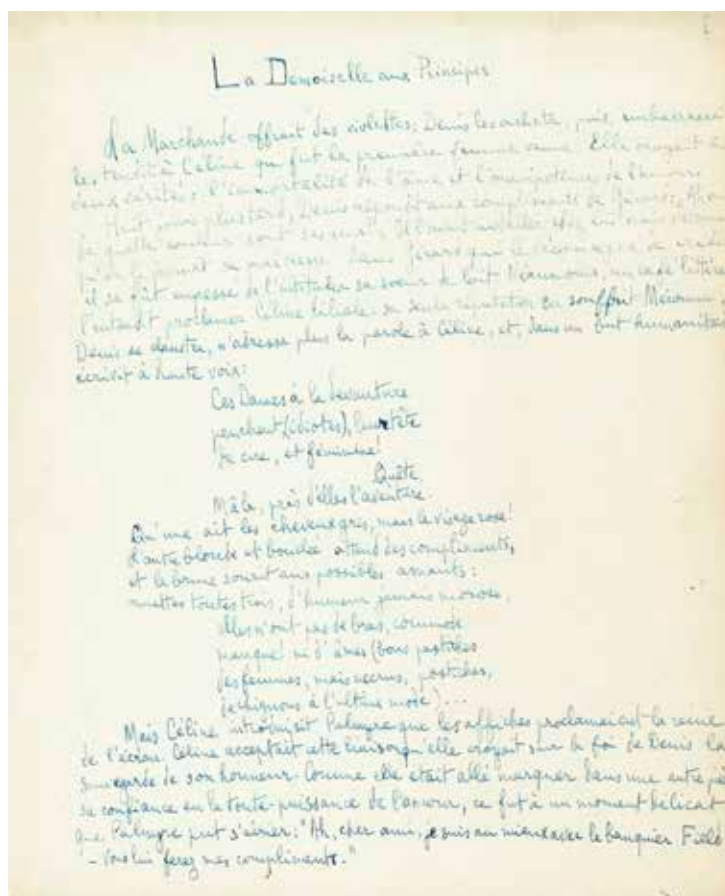 La Demoiselle aux Principes
La Marchande offrait des violettes; Denis les acheta, puis, embarrassé
les tendit à Céline qui fut la première femme venue. Elle croyait à
deux vérités: l'immortalité de l'âme et l'omnipotence de l'amour.
Huit jours plus tard, Denis répondit aux compliments de Gérard;
de quelle couleur sont ses yeux?
il se fût empressé de l'intituler sa soeur de lait. Néanmoins, un
l'entendit proclamer Céline filiale: sa seule réputation en souffrit
Denis n'adressa plus la parole à Céline, et, dans un but humanitaire
écrivit à haute voix:
Ces Dames à la devanture
penchent, (idiotes), leur tête
de cire, et féminine!
Quête,
Mâle, près d'elles l'aventure.
Qu'une ait les cheveux gris, mais le visage rose!
L'autre blonde et bouclée attend des compliments,
et la brune sourit aux possibles amants:
muettes toutes trois, d'humeur jamais morose,
elles n'ont pas de bras, commode
manque! ni d'âmes (bons pastiches
des femmes, mais postiches,
de chignons à l'ultime mode)...
Mais Céline introduisit Palmyre que les affiches proclamaient la reine
de l'écran. Céline acceptait cette liaison qu'elle croyait sur la foi de Denis la
sauvegarde de son honneur. Comme elle était allé marquer dans une autre pièce
sa confiance en la toute-puissance de l'amour, ce fut à un moment délicat
que Palmyre put s'écrier: "Ah, cher ami, je suis au mieux avec le banquier
- Vous lui ferez mes compliments."